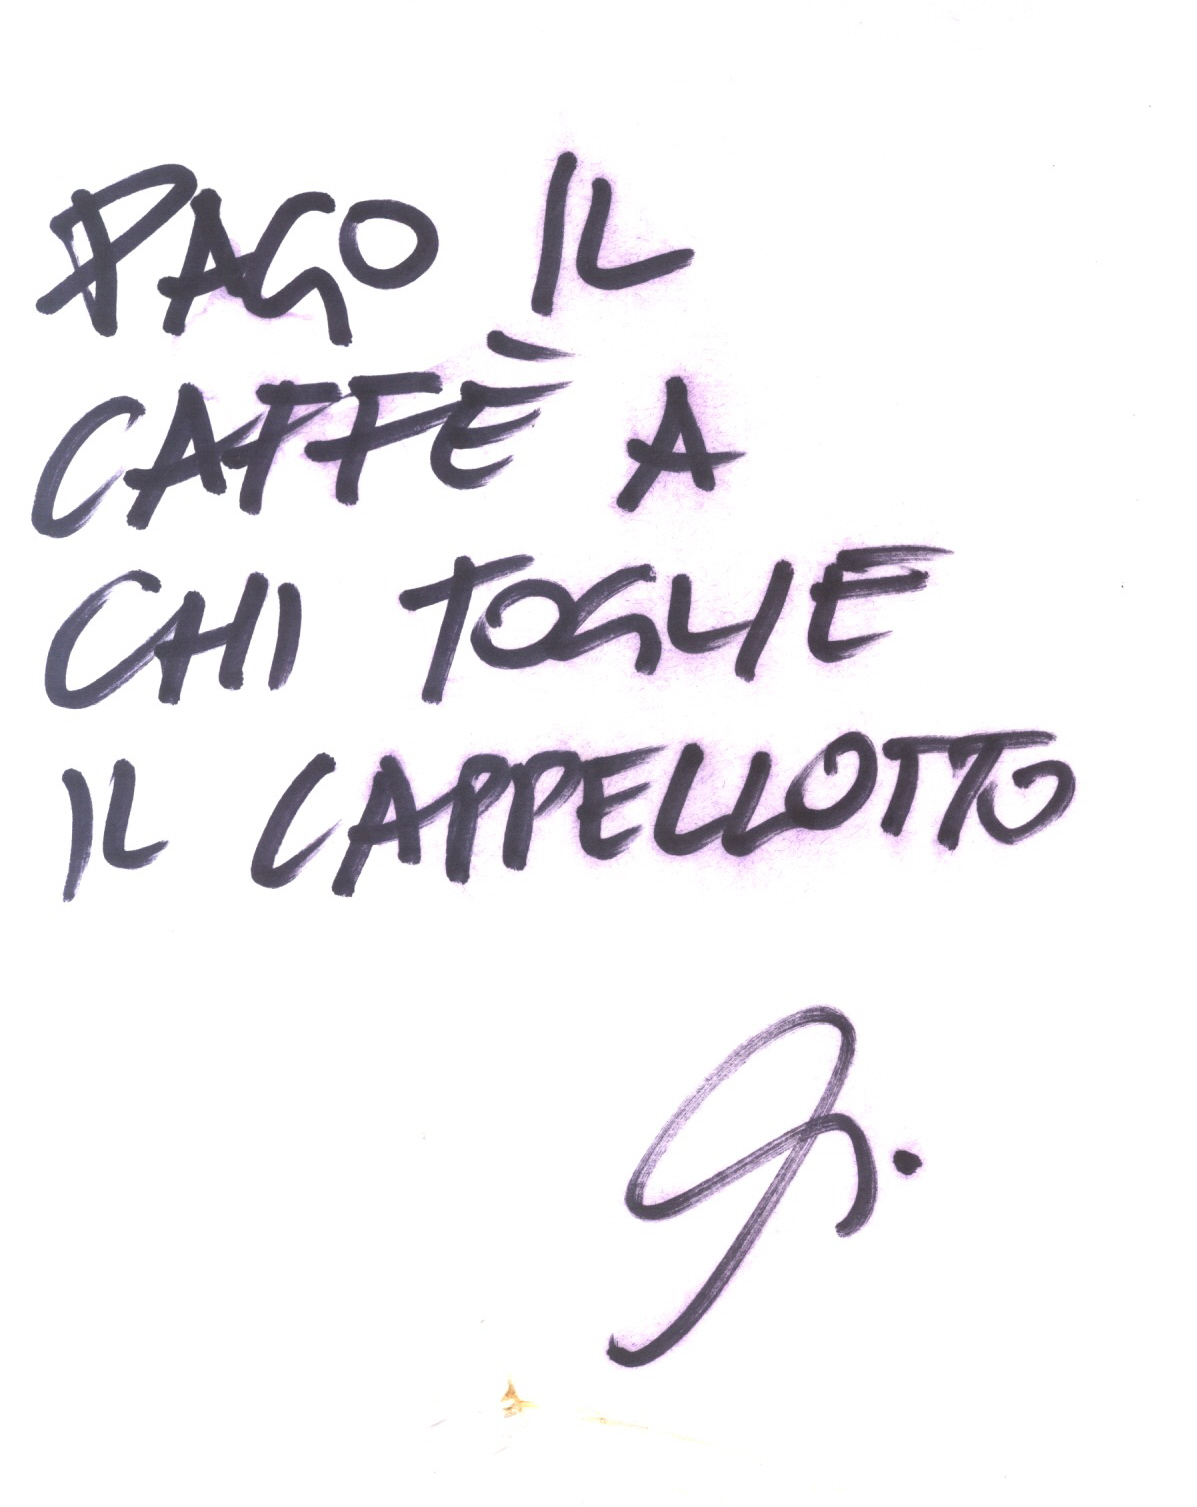 PAGO IL
CAFFÈ A
CHI TOGLIE
IL CAPPELLOTTO
G.